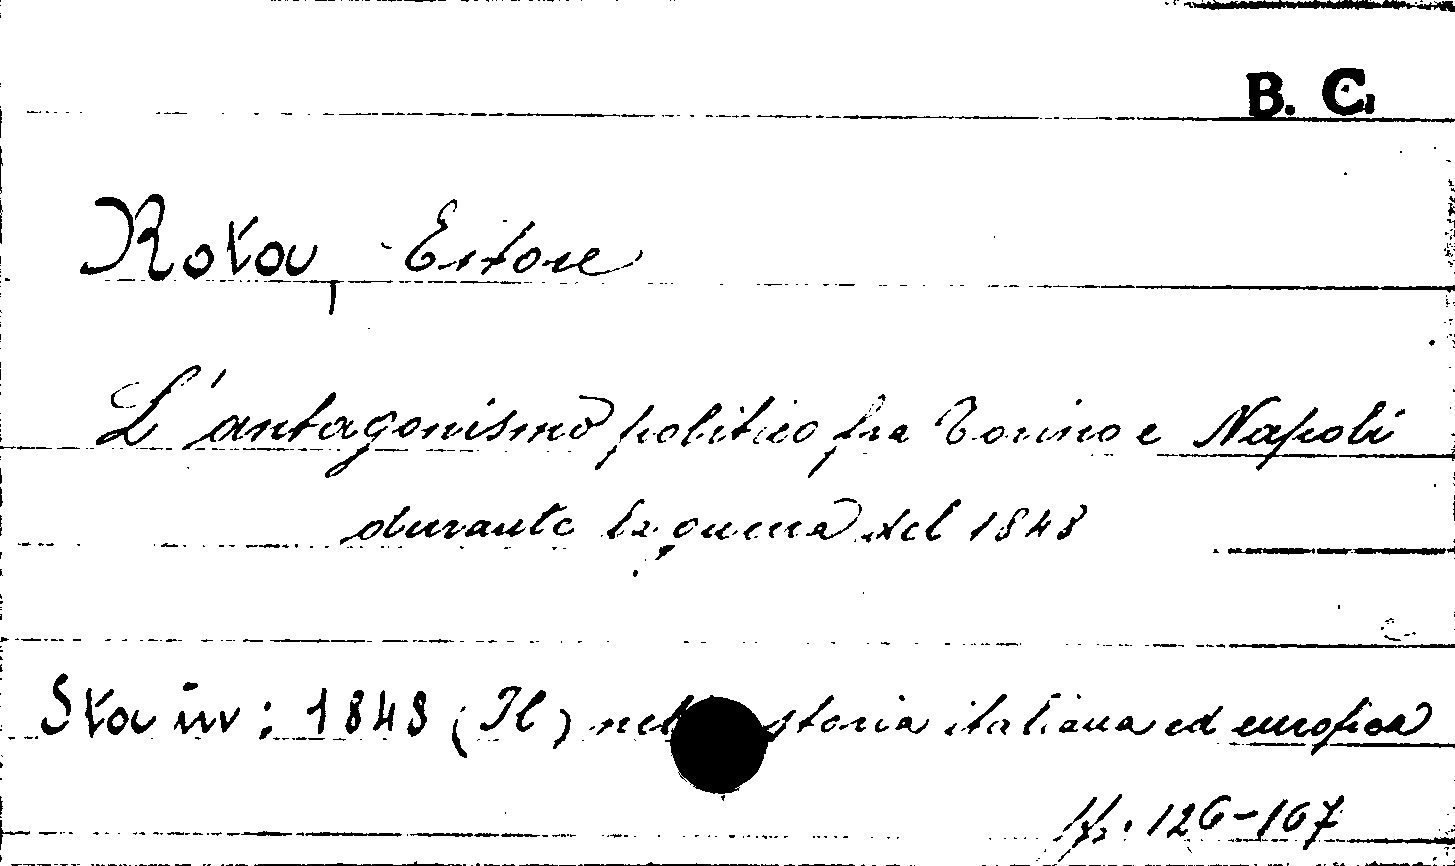 B. C.
Rota, Ettore
L'antagonismo politico fra Torino e Napoli
durante la guerra del 1848
Sta in: 1848 (Il) nella storia italiana ed europea
pp. 126-167